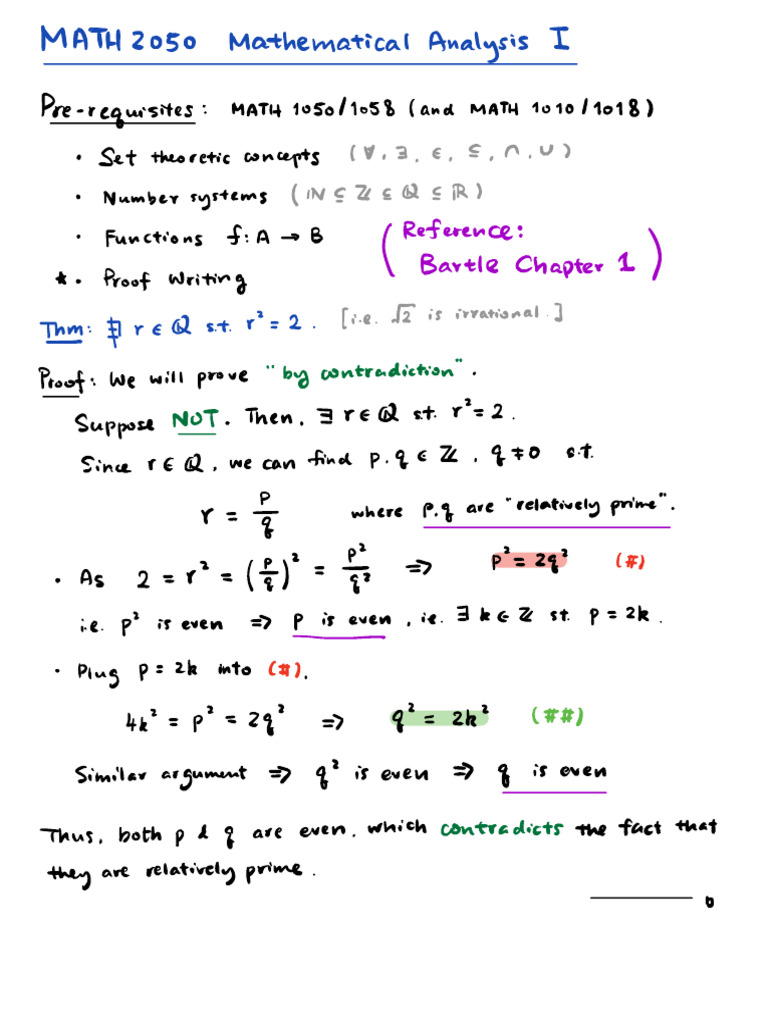 MATH 2050 Mathematical Analysis I
Pre-requisites: MATH 1050/1058 (and MATH 1010/1018)
• Set theoretic concepts (∀, ∃, ∈, ⊆, ∩, ∪)
• Number systems (ℕ ⊆ ℤ ⊆ ℚ ⊆ ℝ)
• Functions f: A → B
(Reference:
Bartle Chapter 1)
★ • Proof Writing
Thm: ∄ r ∈ ℚ s.t. r² = 2. [i.e. √2 is irrational.]
Proof: We will prove "by contradiction".
Suppose NOT. Then, ∃ r ∈ ℚ st. r² = 2.
Since r ∈ ℚ, we can find p, q ∈ ℤ, q ≠ 0 s.t.
r = p/q where p, q are "relatively prime".
• As 2 = r² = (p/q)² = p²/q² ⇒ p² = 2q² (#)
i.e. p² is even ⇒ p is even, ie. ∃ k ∈ ℤ st. p = 2k.
• Plug p = 2k into (#),
4k² = p² = 2q² ⇒ q² = 2k² (##)
Similar argument ⇒ q² is even ⇒ q is even
Thus, both p & q are even, which contradicts the fact that
they are relatively prime.